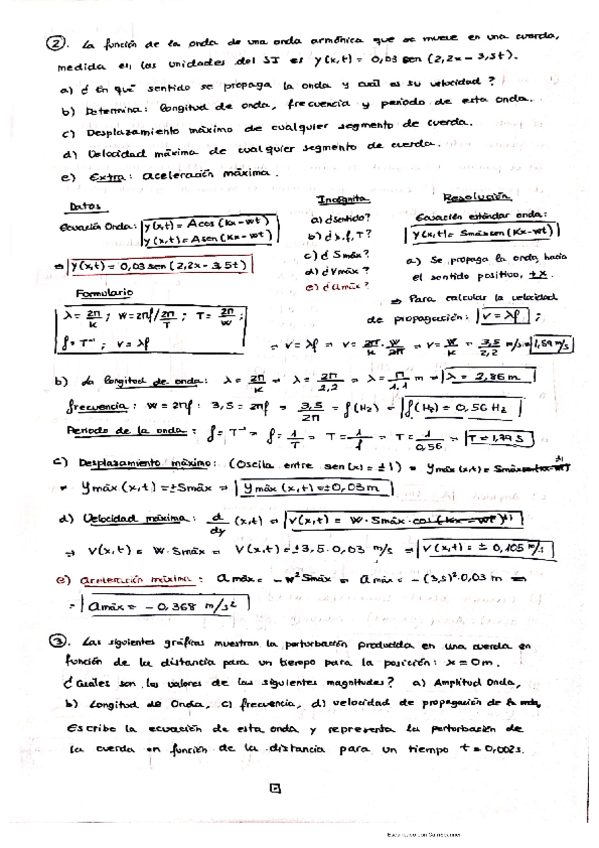 ②. La función de la onda de una onda armónica que se mueve en una cuerda,
medida en las unidades del SI es y(x,t) = 0,03 sen (2,2x - 3,5t).
a) ¿En qué sentido se propaga la onda y cuál es su velocidad?
b) Determina: longitud de onda, frecuencia y periodo de esta onda.
c) Desplazamiento máximo de cualquier segmento de cuerda.
d) Velocidad máxima de cualquier segmento de cuerda.
e) Extra: aceleración máxima.
Datos
Ecuación Onda: y(x,t) = A cos (Kx - wt)
y(x,t) = A sen (Kx - wt)
⇒ y(x,t) = 0,03 sen (2,2x - 3,5t)
Formulario
λ = 2π/K ; W = 2πf / 2π/T ; T = 2π/W ;
f = T⁻¹ ; v = λf
Incógnita
a) ¿Sentido?
b) ¿λ, f, T?
c) ¿Smáx?
d) ¿Vmáx?
e) ¿Amáx?
Resolución
Ecuación estándar onda:
y(x,t) = Smáx sen (Kx - wt)
a) Se propaga la onda hacia
el sentido positivo, +x.
⇒ Para calcular la velocidad
de propagación: v = λf ;
⇒ v = λf ⇒ v = 2π/K · W/2π ⇒ v = W/K = 3,5/2,2 m/s = 1,59 m/s
b) La longitud de onda: λ = 2π/K ⇒ λ = 2π/2,2 ⇒ λ = π/1,1 m ⇒ λ = 2,86 m
frecuencia: W = 2πf : 3,5 = 2πf ⇒ 3,5/2π = f (Hz) = f (Hz) = 0,56 Hz
Periodo de la onda: f = T⁻¹ ⇒ f = 1/T ⇒ T = 1/f = T = 1/0,56 ⇒ T = 1,79 s
c) Desplazamiento máximo: (Oscila entre sen(x) = ±1) ⇒ ymáx (x,t) = Smáx
⇒ ymáx (x,t) = ± Smáx ⇒ ymáx (x,t) = ± 0,03 m
d) Velocidad máxima: d/dy (x,t) ⇒ V(x,t) = W · Smáx · cos (Kx - wt)
⇒ V(x,t) = W · Smáx ⇒ V(x,t) = ± 3,5 · 0,03 m/s = V(x,t) = ± 0,105 m/s
e) aceleración máxima: amáx = - w² Smáx ⇒ amáx = - (3,5)² · 0,03 m ⇒
⇒ amáx = - 0,368 m/s²
③. Las siguientes gráficas muestran la perturbación producida en una cuerda en
función de la distancia para un tiempo para la posición: x = 0 m.
¿Cuáles son los valores de las siguientes magnitudes? a) Amplitud Onda,
b) Longitud de Onda, c) frecuencia, d) velocidad de propagación de la onda,
Escribe la ecuación de esta onda y representa la perturbación de
la cuerda en función de la distancia para un tiempo t = 0,002s.
Escaneado con CamScanner